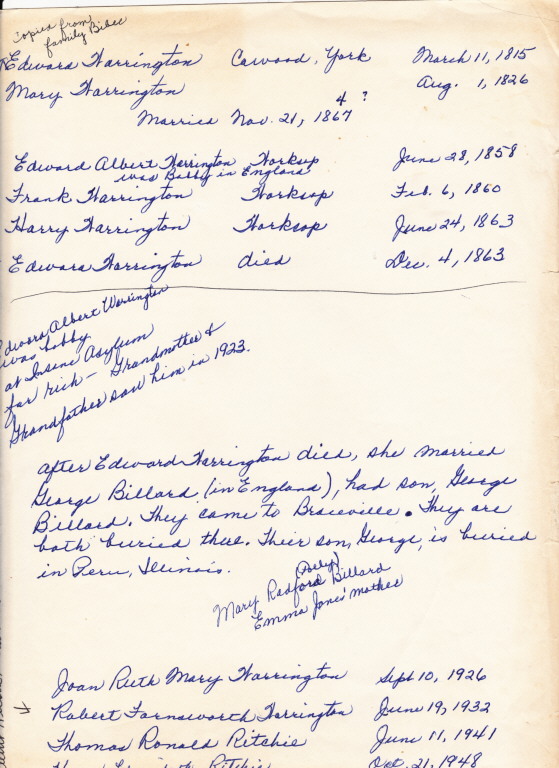 Copied from
family Bible
Edward Warrington Cawood, York March 11, 1815
Mary Warrington Aug. 1, 1826
4 ?
Married Nov. 21, 1867
Edward Albert Warrington Worksop June 28, 1858
was Bobby in England
Frank Warrington Worksop Feb. 6, 1860
Harry Warrington Worksop June 24, 1863
Edward Warrington died Dec. 4, 1863
Edward Albert Warrington
was bobby
at Insane Asylum
for rich - Grandmother &
Grandfather saw him in 1923.
After Edward Warrington died, she married
George Billard (in England), had son, George
Billard. They came to Braceville. They are
both buried there. Their son, George, is buried
in Peru, Illinois.
Mary Radford Billard
Emma Jones' mother
Joan Ruth Mary Warrington Sept 10, 1926
Robert Farnsworth Warrington June 19, 1932
Thomas Ronald Ritchie June 11, 1941
Ritchie Oct. 21, 1948